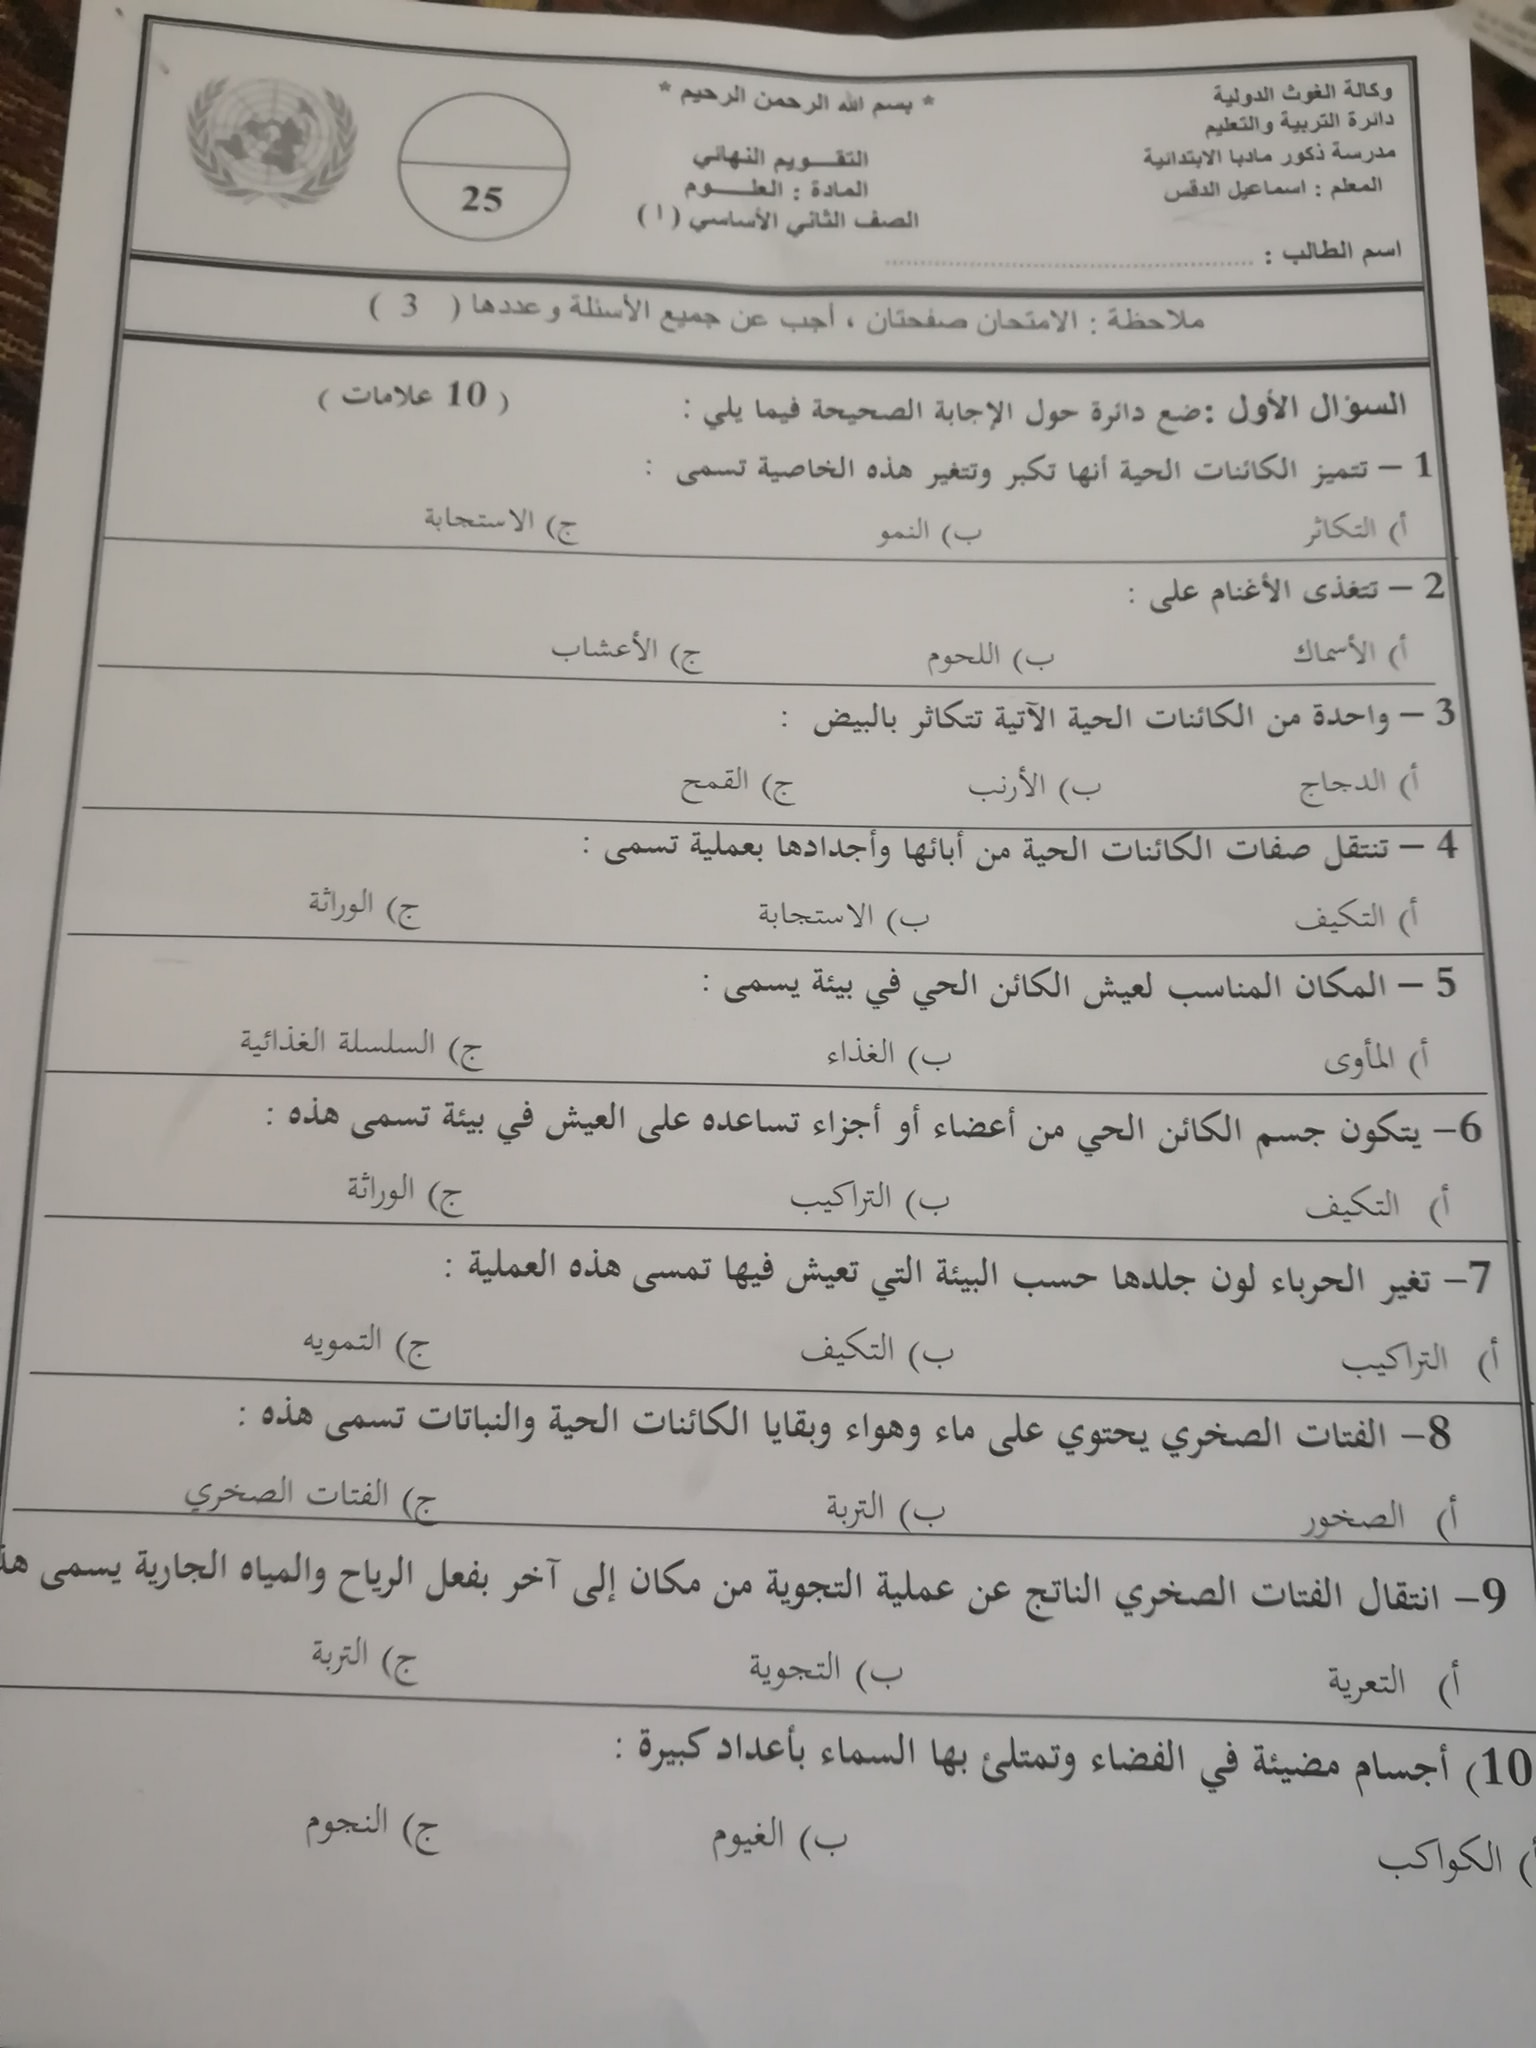 وكالة الغوث الدولية
دائرة التربية والتعليم
مدرسة ذكور مادبا الابتدائية
المعلم : اسماعيل الدقس
* بسم الله الرحمن الرحيم *
التقـــويم النهائي
المادة : العلــــوم
الصف الثاني الأساسي ( ١ )
25
اسم الطالب : ............................................
ملاحظة : الامتحان صفحتان ، أجب عن جميع الأسئلة وعددها ( 3 )
السؤال الأول :ضع دائرة حول الإجابة الصحيحة فيما يلي : ( 10 علامات )
1 – تتميز الكائنات الحية أنها تكبر وتتغير هذه الخاصية تسمى :
أ) التكاثر ب) النمو ج) الاستجابة
2 – تتغذى الأغنام على :
أ) الأسماك ب) اللحوم ج) الأعشاب
3 – واحدة من الكائنات الحية الآتية تتكاثر بالبيض :
أ) الدجاج ب) الأرنب ج) القمح
4 – تنتقل صفات الكائنات الحية من أبائها وأجدادها بعملية تسمى :
أ) التكيف ب) الاستجابة ج) الوراثة
5 – المكان المناسب لعيش الكائن الحي في بيئة يسمى :
أ) المأوى ب) الغذاء ج) السلسلة الغذائية
6– يتكون جسم الكائن الحي من أعضاء أو أجزاء تساعده على العيش في بيئة تسمى هذه :
أ) التكيف ب) التراكيب ج) الوراثة
7– تغير الحرباء لون جلدها حسب البيئة التي تعيش فيها تمسى هذه العملية :
أ) التراكيب ب) التكيف ج) التمويه
8– الفتات الصخري يحتوي على ماء وهواء وبقايا الكائنات الحية والنباتات تسمى هذه :
أ) الصخور ب) التربة ج) الفتات الصخري
9– انتقال الفتات الصخري الناتج عن عملية التجوية من مكان إلى آخر بفعل الرياح والمياه الجارية يسمى
أ) التعرية ب) التجوية ج) التربة
10) أجسام مضيئة في الفضاء وتمتلئ بها السماء بأعداد كبيرة :
أ) الكواكب ب) الغيوم ج) النجوم